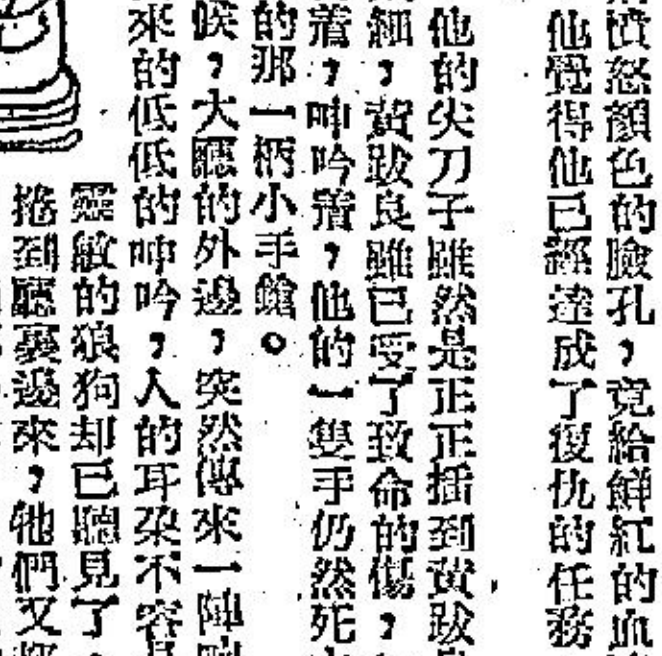 憤怒顏色的臉孔，竟給鮮紅的血
他覺得他已經達成了復仇的任務
他的尖刀子雖然是正正插到黃跋
細，黃跋良雖已受了致命的傷，
着，呻吟着，他的一隻手仍然死
的那一柄小手鎗。
候，大廳的外邊，突然傳來一陣
來的低低的呻吟，人的耳朶不容
靈敏的狼狗却已聽見了，
捲到廳裏邊來，牠們又